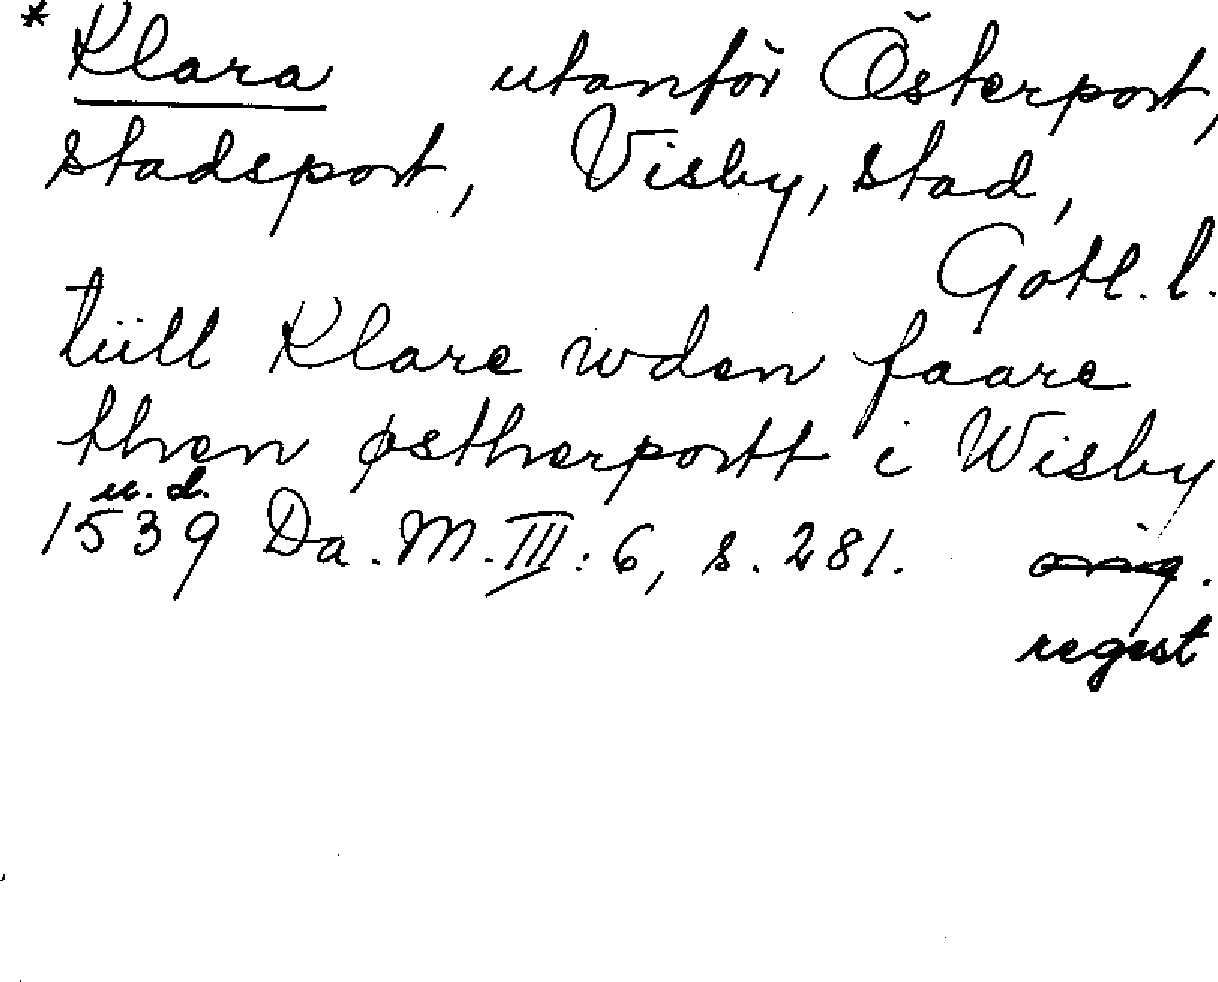 * Klara utanför Österport,
stadsport, Visby, stad,
Gotl. l.
tiill Klare wden faare
then østherportt i Wisby
u. d.
1539 Da. M. III: 6, s. 281. orig.
regest